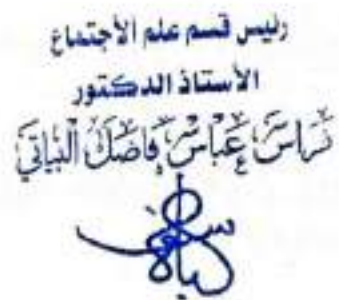 رئيس قسم علم الأجتماع
الأستاذ الدكتور
عباس فاضل البياتي